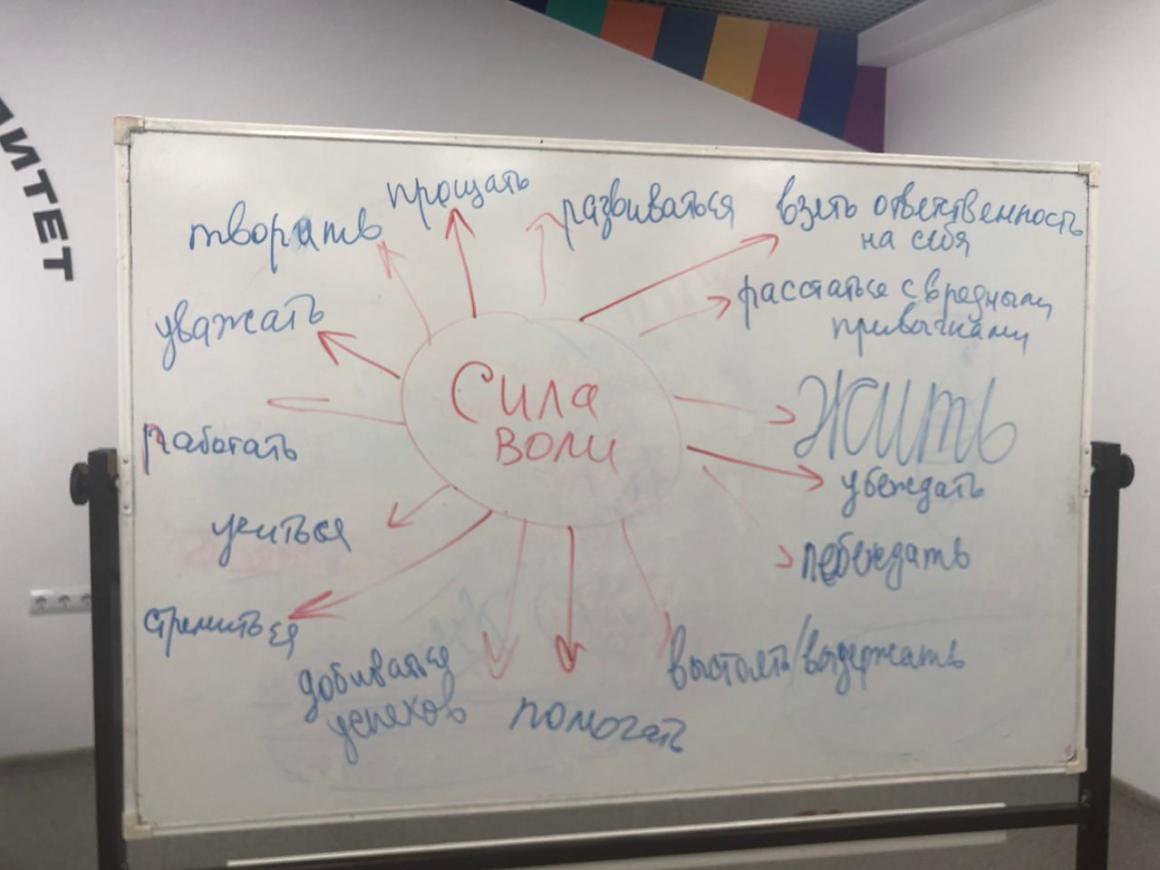 ИТЕТ
творить
прощать
развиваться
взять ответственность
на себя
уважать
расстаться с вредными
привычками
Сила
воли
Жить
работать
убеждать
учиться
побеждать
стремиться
добиваться
успехов
помогать
выстоять/выдержать